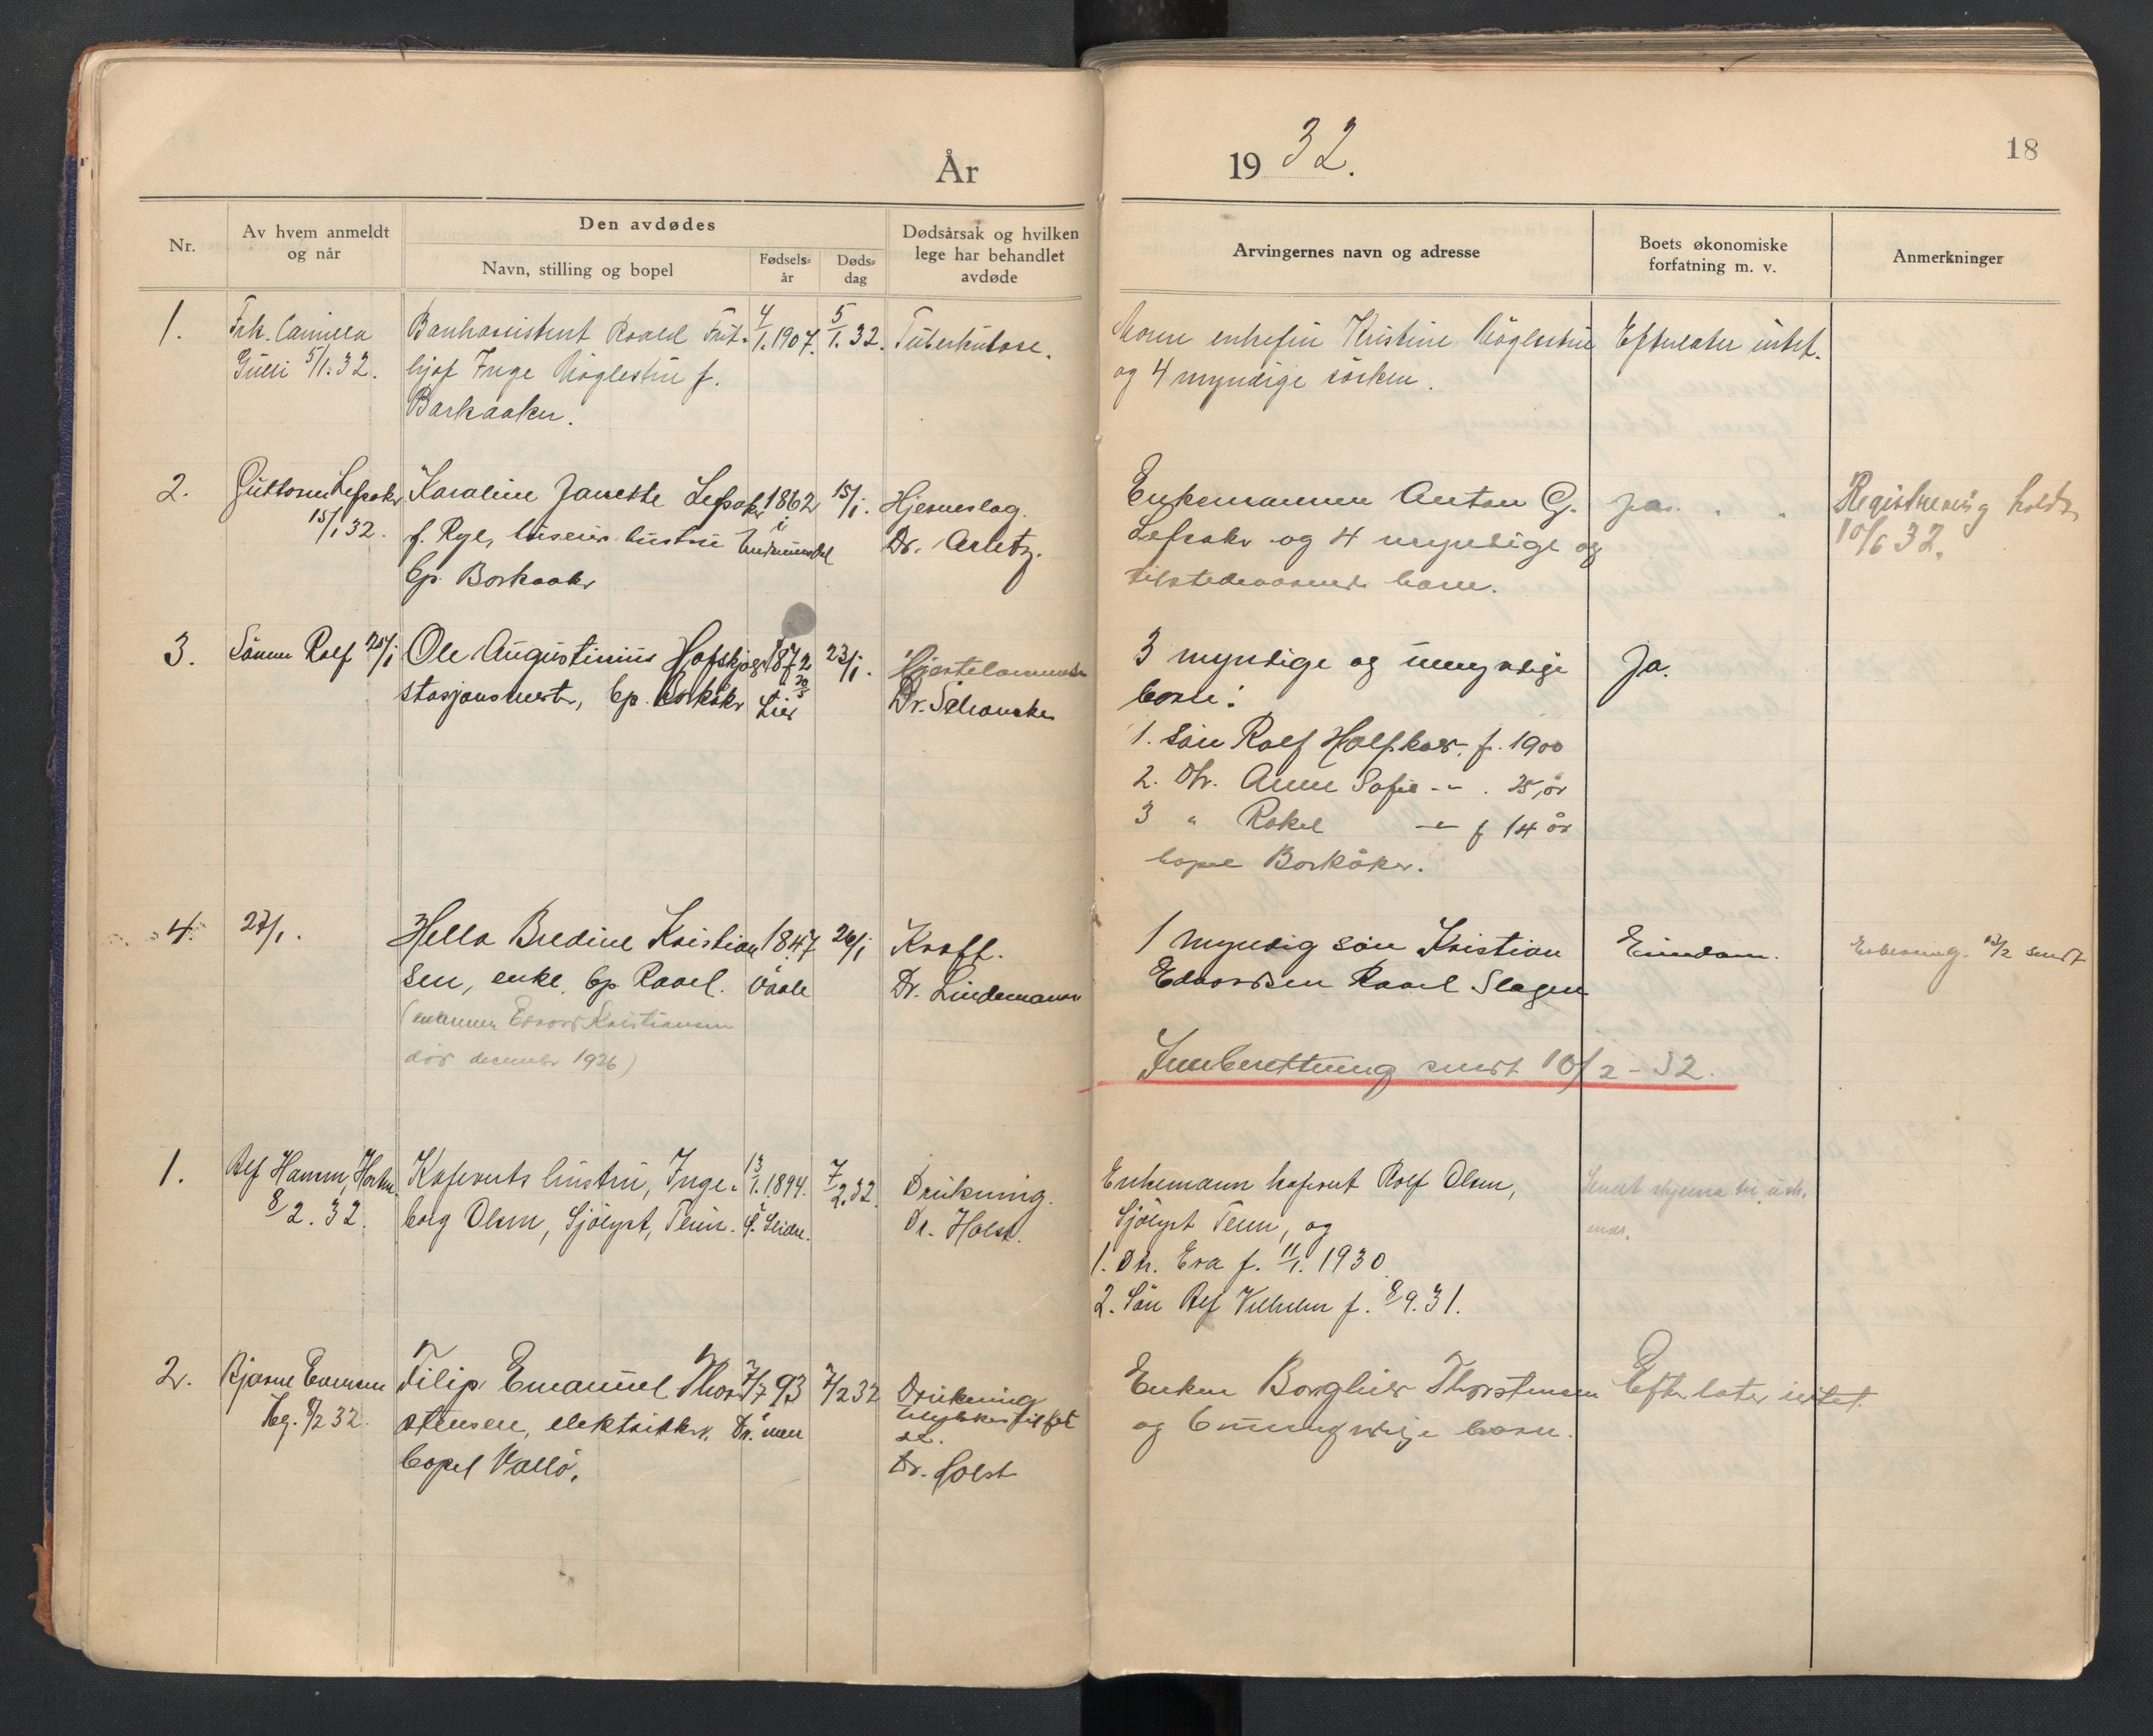 År 1932.
18
Nr.
Av hvem anmeldt
og når
Den avdødes
Navn, stilling og bopel
Fødsels-
år
Døds-
dag
Dødsårsak og hvilken
lege har behandlet
avdøde
Arvingernes navn og adresse
Boets økonomiske
forfatning m. v.
Anmerkninger
1.
Frk. Camilla
Gulli 5/1.32.
Bankassistent Roald Frit-
hjof Inge Nöglestue f.
Barkaaker.
4/1.1907.
5/1.32.
Tuberkulose.
Moren enkefru Kristine Nöglestue
og 4 myndige søsken.
Efterlater intet.
2.
Guttorm Lefsaker
15/1 32.
Karoline Janette Lefsaker
f. Rye, hustru
bp. Borkaaker
1862
i
15/1.
Hjerneslag.
Dr. Arentz.
Enkemannen Anton G.
Lefsaker og 4 myndige og
tilstedeværende barn.
Ja.
Registrering holdt
10/6 32.
3.
Sönnen Rolf 25/1
Ole Augustinius
stasjonsmester, bp. Borkåker
1872
20/3
Lier
23/1.
Hjertelammelse
Dr. Schanche
3 myndige og umyndige
barn:
1. Sön Rolf f. 1900
2. Dtr. Anne Sofie -"- . 25 år
3 " Rakel -"- f 14 år
bopel Borkåker.
Ja.
4.
27/1.
Hella Bredine Kristian
sen, enke, bp Ravel.
(enkemann Edvard Kristiansen
död december 1926)
1847
Våle
26/1
Kreft.
Dr. Lindemann
1 myndig sön Kristian
Edvardsen Ravel Slagen
Eiendom.
12/2 sendt
Innberettning sendt 10/2 - 32.
1.
Alf Hansen, Horten.
8/2.32.
Kaferts hustru, Inge-
borg Olsen, Sjölyst, Teien.
13/1.1894.
7/2.32.
Drukning.
Dr. Holst.
Enkemann Rolf Olsen,
Sjölyst Teien, og
1. Dtr. Eva f. 11/1.1930
2. Sön Alf Vilhelm f. 8/9.31.
Sendt skjema til
2.
Bjarne Evensen
Tbg. 8/2 32.
Filip Emanuel Thor-
stensen, elektriker.
bopel Vallö.
7/7 93
7/2 32
Drukning
ulykkestilfel
le.
Dr. Holst
Enken Borghild Thorstensen
og 6 umyndige barn.
Efterlater intet.